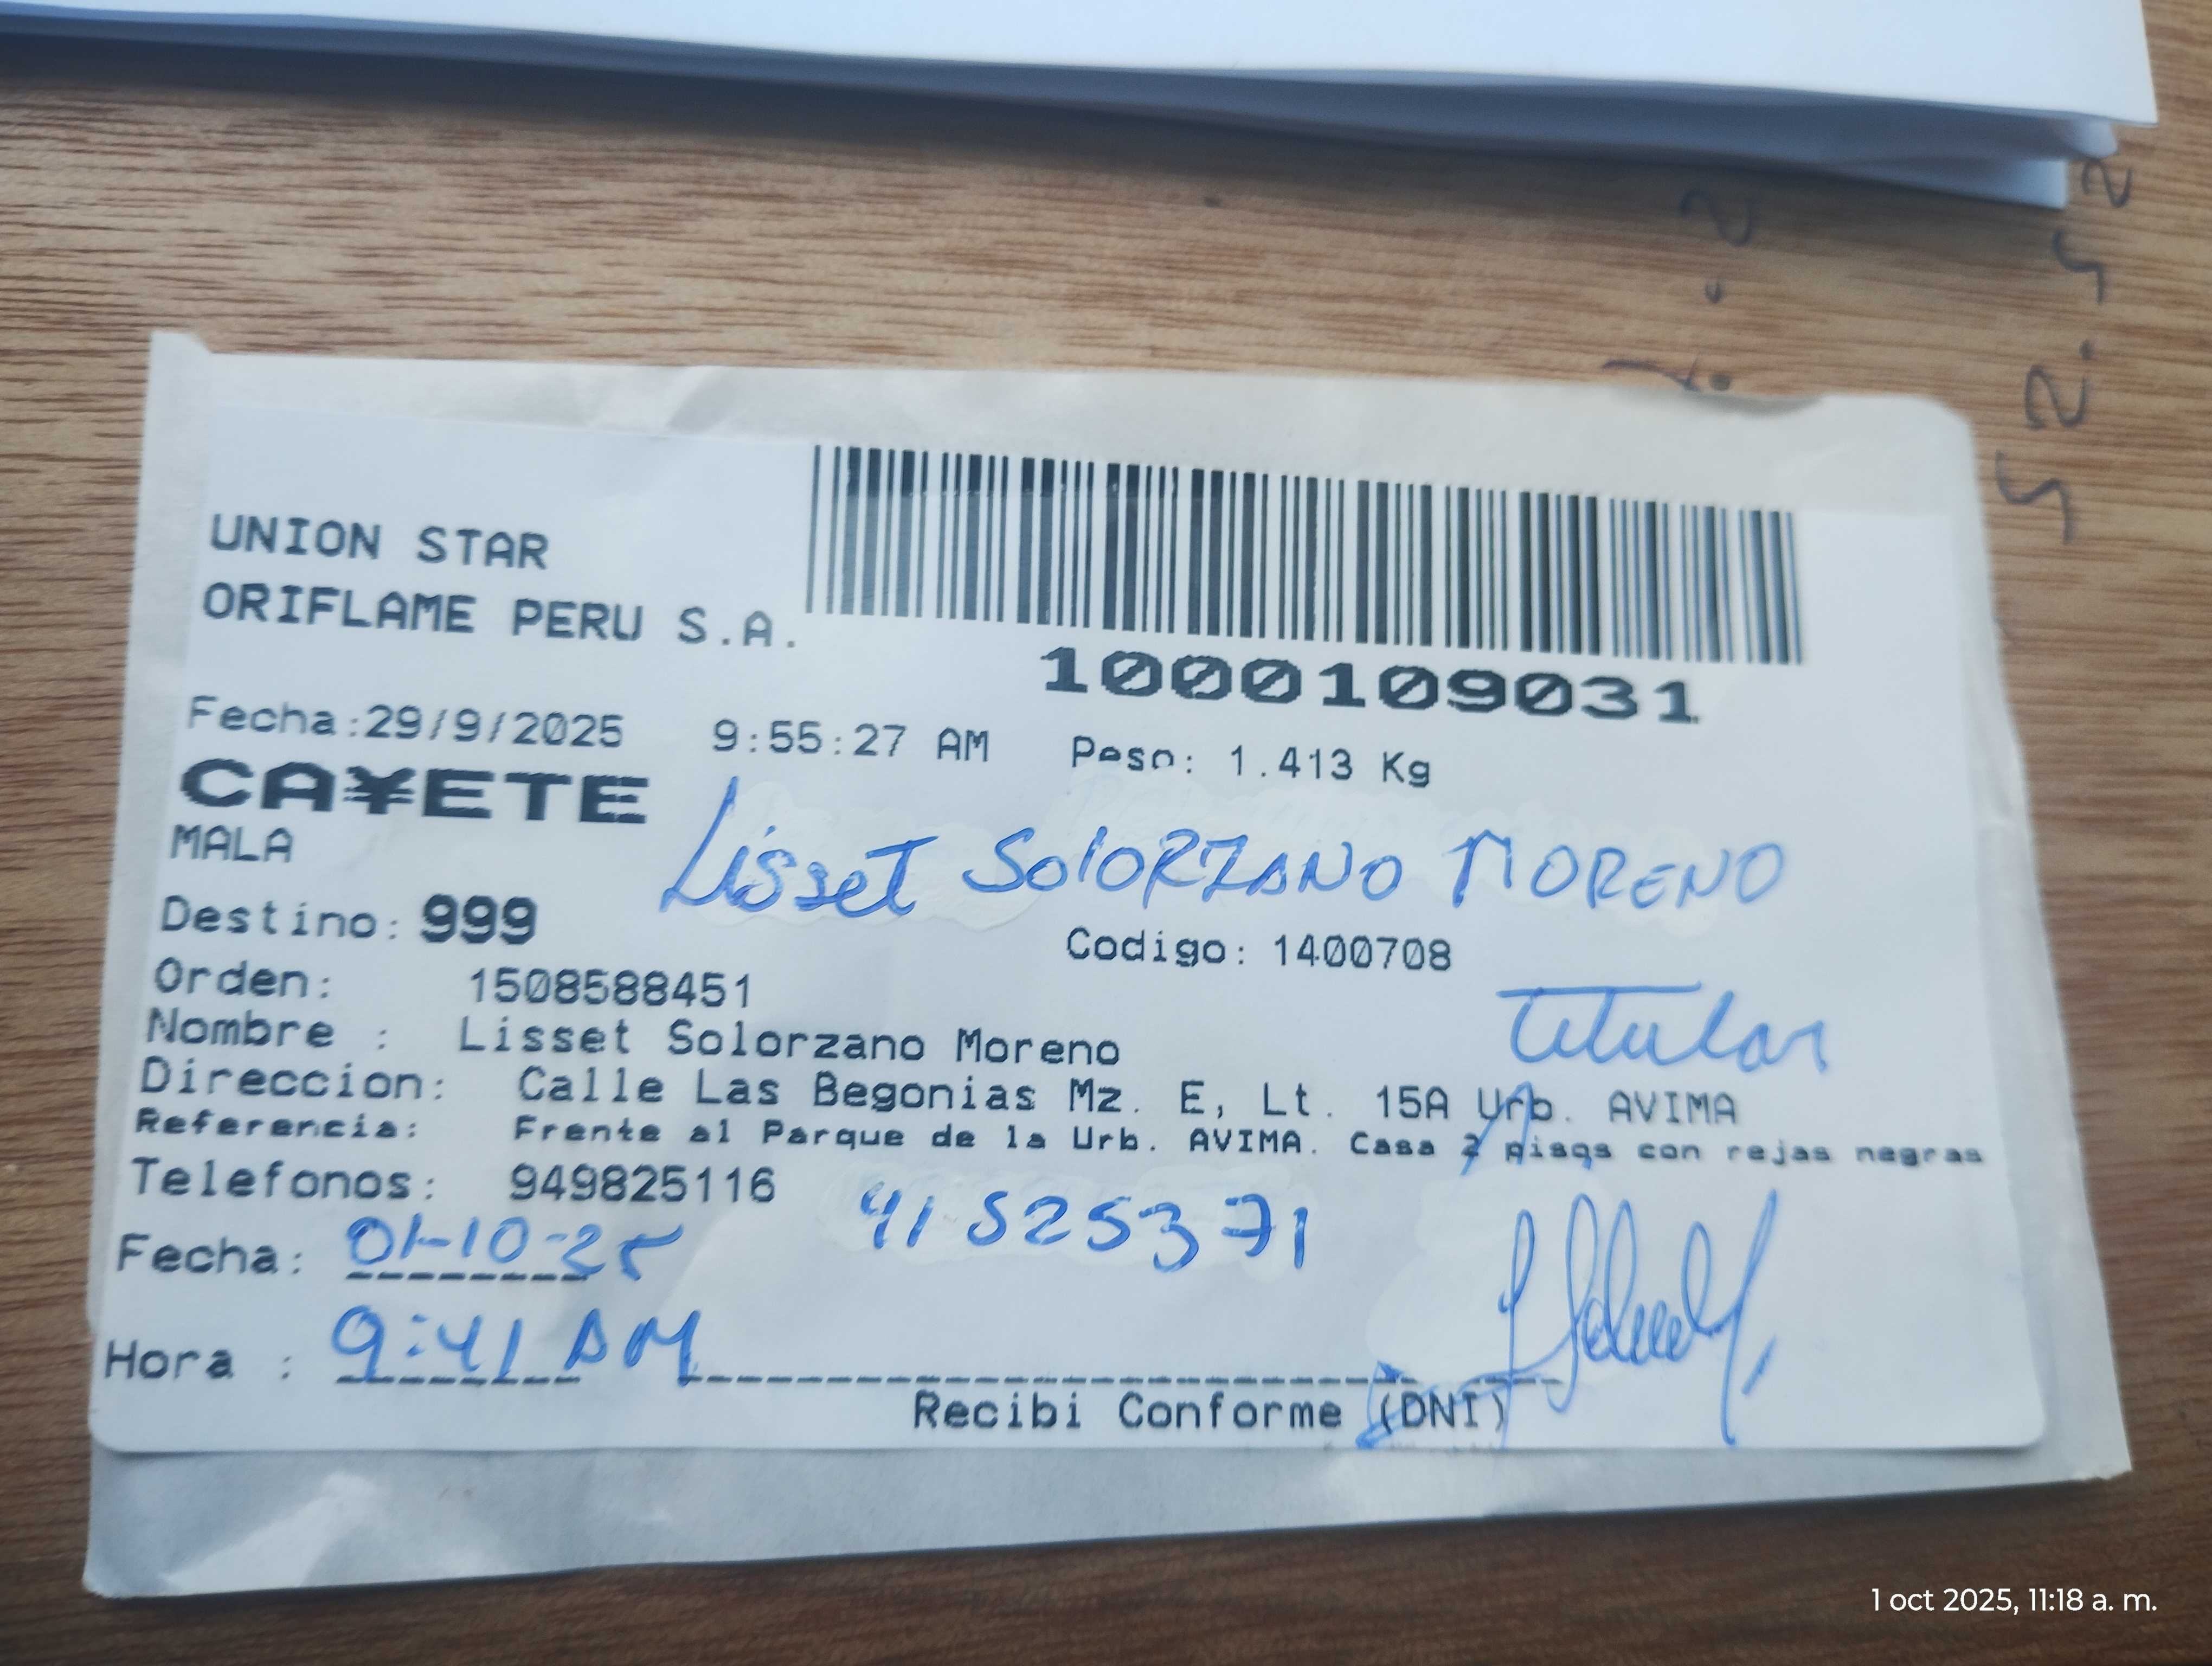 UNION STAR
ORIFLAME PERU S.A.
1000109031
Fecha:29/9/2025 9:55:27 AM Peso: 1.413 Kg
CA¥ETE
MALA
Lisset SOLORZANO MORENO
Destino: 999
Codigo: 1400708
Orden: 1508588451
Titular
Nombre : Lisset Solorzano Moreno
Direccion: Calle Las Begonias Mz. E, Lt. 15A Urb. AVIMA
Referencia: Frente al Parque de la Urb. AVIMA. Casa 2 pisos con rejas negras
Telefonos: 949825116
41525371
Fecha: 01-10-25
Hora : 9:41 AM
Recibi Conforme (DNI)
1 oct 2025, 11:18 a. m.